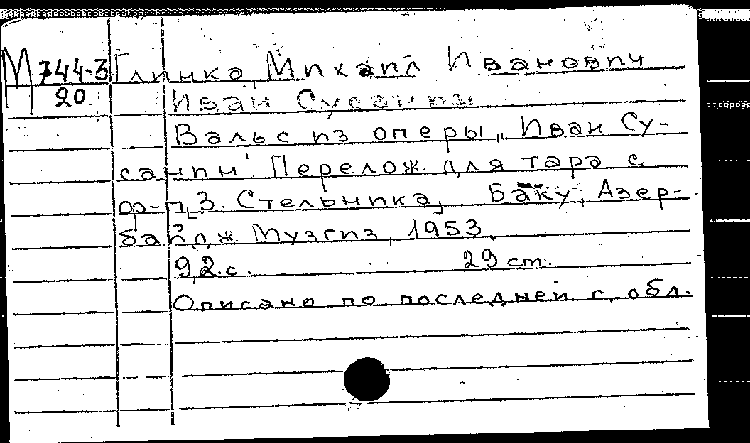 М 744-3 Глинка, Михаил Иванович
20 Иван Сусанин
Вальс из оперы „Иван Су-
санин". Перелож. для тара с
ф-п. З. Стельника, Баку, Азер-
байдж. Музгиз, 1953.
9,2 с. 29 cm.
Описано по последней с. обл.